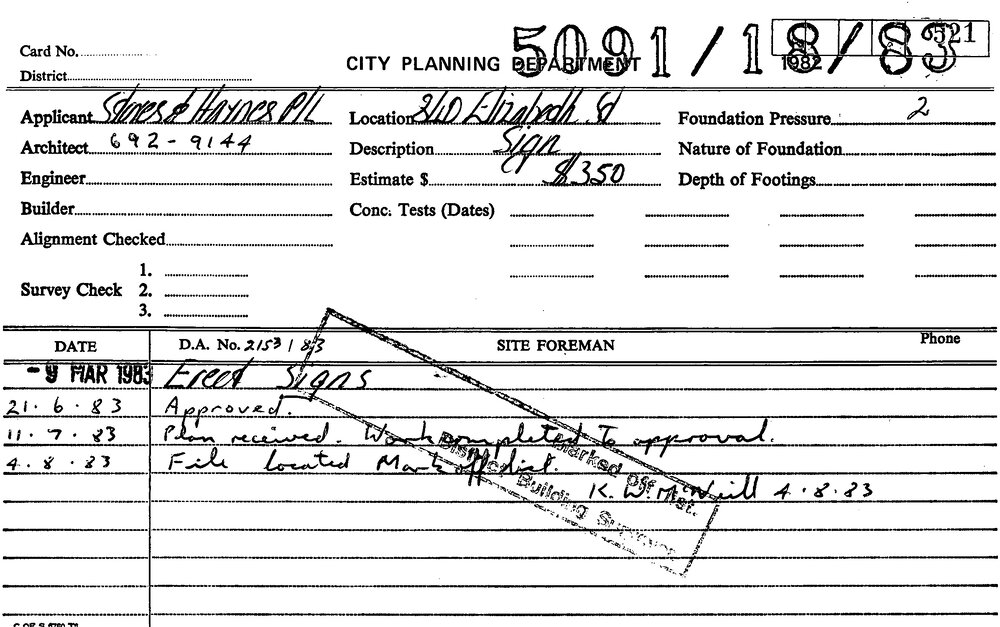 5091/18/83
521
1982
Card No.
District
CITY PLANNING DEPARTMENT
Applicant Stores & Haynes P/L
Location 240 Elizabeth St
Foundation Pressure 2
Architect 692-9144
Description Sign
Nature of Foundation
Engineer
Estimate $ $350
Depth of Footings
Builder
Conc. Tests (Dates)
Alignment Checked
Survey Check
1.
2.
3.
DATE D.A. No. 2153/83 SITE FOREMAN Phone
-9 MAR 1983 Erect Signs
21.6.83 Approved.
11.7.83 Plan received. Work completed to approval.
4.8.83 File located Mark off dist.
K. W. McNeill 4.8.83
Marked Off Dist.
District Building Surveyor